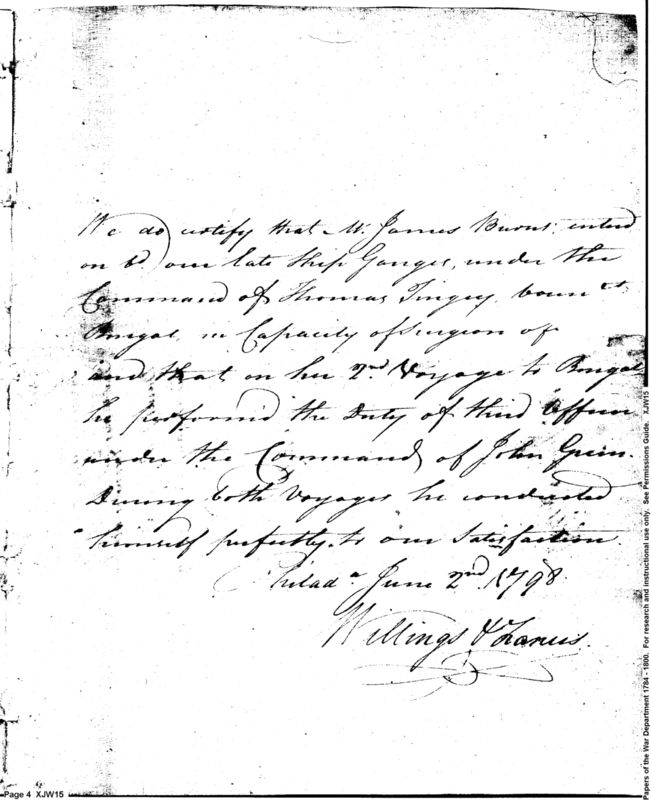 We do certify that Mr. James Burns, entered
on bd. our late Ship Ganges, under the
Command of Thomas Tingey, boun to
Bengal, in Capacity of Surgeon of
and that on her 2nd. Voyage to Bengal
he performed the Duty of third Officer
under the Command of John Green.
During both Voyages he conducted
himself perfectly to our Satisfaction.
Philada. June 2nd. 1798.
Willings & Francis.
Page 4 XJW15
Papers of the War Department 1784 - 1800. For research and instructional use only. See Permissions Guide. XJW15